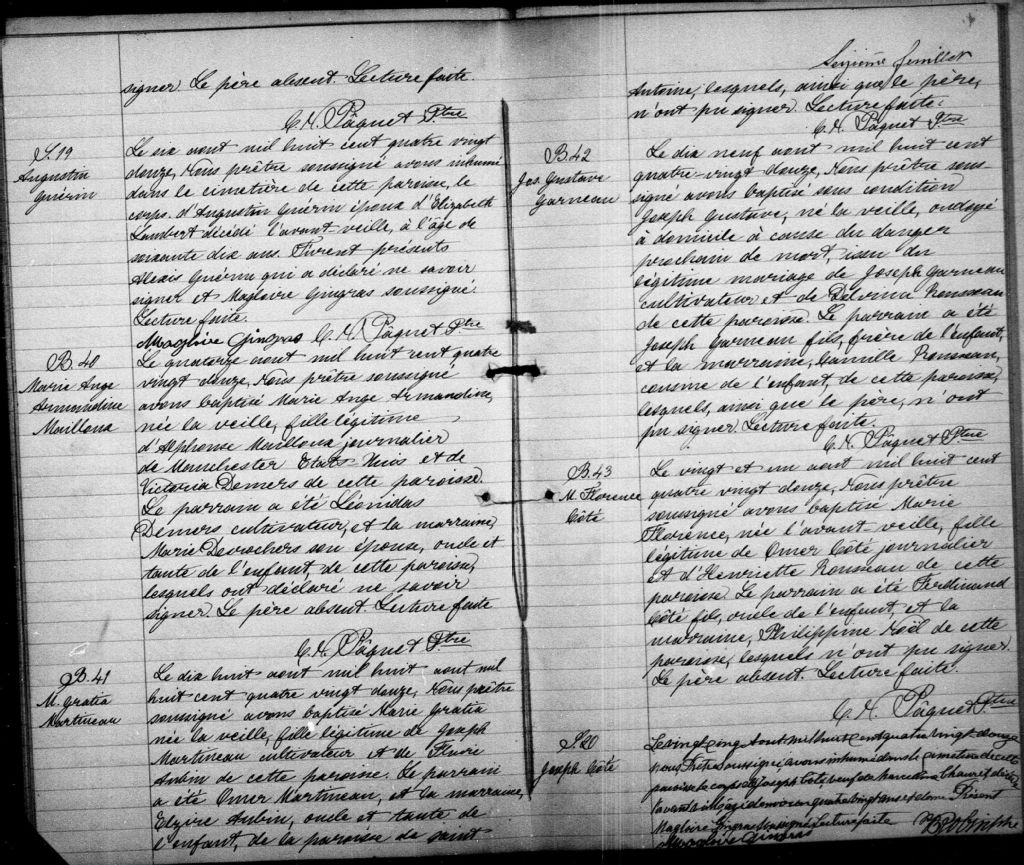 signer. Le père absent. Lecture faite.
C. N. Pâquet Ptre
S. 19
Augustin
Guérin
Le six aout mil huit cent quatre vingt
douze, Nous prêtre soussigné avons inhumé
dans le cimetière de cette paroisse, le
corps d'Augustin Guérin époux d'Elizabeth
Lambert décédé l'avant veille, à l'âge de
soixante dix ans. Furent présents
Alexis Guérin qui a déclaré ne savoir
signer et Magloire Gingras soussigné.
Lecture faite.
Magloire Gingras C. N. Pâquet Ptre
B. 40
Marie Ange
Armandine
Mailloux
Le quatorze aout mil huit cent quatre
vingt douze, Nous prêtre soussigné
avons baptisé Marie Ange Armandine,
née la veille, fille légitime
d'Alphonse Mailloux journalier
de Manchester Etats-Unis et de
Victoria Demers de cette paroisse.
Le parrain a été Léonidas
Demers cultivateur, et la marraine,
Marie Desrochers son épouse, oncle et
tante de l'enfant, de cette paroisse,
lesquels ont déclaré ne savoir
signer. Le père absent Lecture faite
C. N. Pâquet Ptre
B. 41
M. Gratia
Martineau
Le dix huit aout mil huit aout mil
huit cent quatre vingt douze, Nous prêtre
soussigné avons baptisé Marie Gratia
née la veille, fille légitime de Joseph
Martineau cultivateur et de Flore
Aubin de cette paroisse. Le parrain
a été Omer Martineau, et la marraine,
Elzire Aubin, oncle et tante de
l'enfant, de la paroisse de saint
Seizième feuillet
Antoine, lesquels, ainsi que le père,
n'ont pu signer. Lecture faite.
C. N. Pâquet Ptre
B. 42
Jos. Gustave
Garneau
Le dix neuf aout mil huit cent
quatre-vingt douze, Nous prêtre sous
signé avons baptisé sous condition
Joseph Gustave, né la veille, ondoyé
à domicile à cause du danger
prochain de mort, issu du
légitime mariage de Joseph Garneau
cultivateur et de Delvina Rousseau
de cette paroisse. Le parrain a été
Joseph Garneau fils, frère de l'enfant,
et la marraine, Camille Rousseau,
cousine de l'enfant, de cette paroisse,
lesquels, ainsi que le père, n'ont
pu signer. Lecture faite.
C. N. Pâquet Ptre
B. 43
M. Florence
Côté
Le vingt et un aout mil huit cent
quatre vingt douze, Nous prêtre
soussigné avons baptisé Marie
Florence, née l'avant-veille, fille
légitime de Omer Côté journalier
et d'Henriette Rousseau de cette
paroisse. Le parrain a été Ferdinand
Côté fils, oncle de l'enfant, et la
marraine, Philippine Noël de cette
paroisse, lesquels n'ont pu signer.
Le père absent. Lecture faite.
C. N. Pâquet Ptre
S. 20
Joseph Côté
Le vingt cinq aout mil huit cent quatre vingt douze
nous, Prêtre soussigné, avons inhumé dans le cimetière de cette
paroisse le corps de Joseph Côté, veuf de Marcelline et décédé
l'avant veille, âgé de quatre vingt ans et demi. Présent
Magloire Gingras soussigné Lecture faite
Magloire Gingras